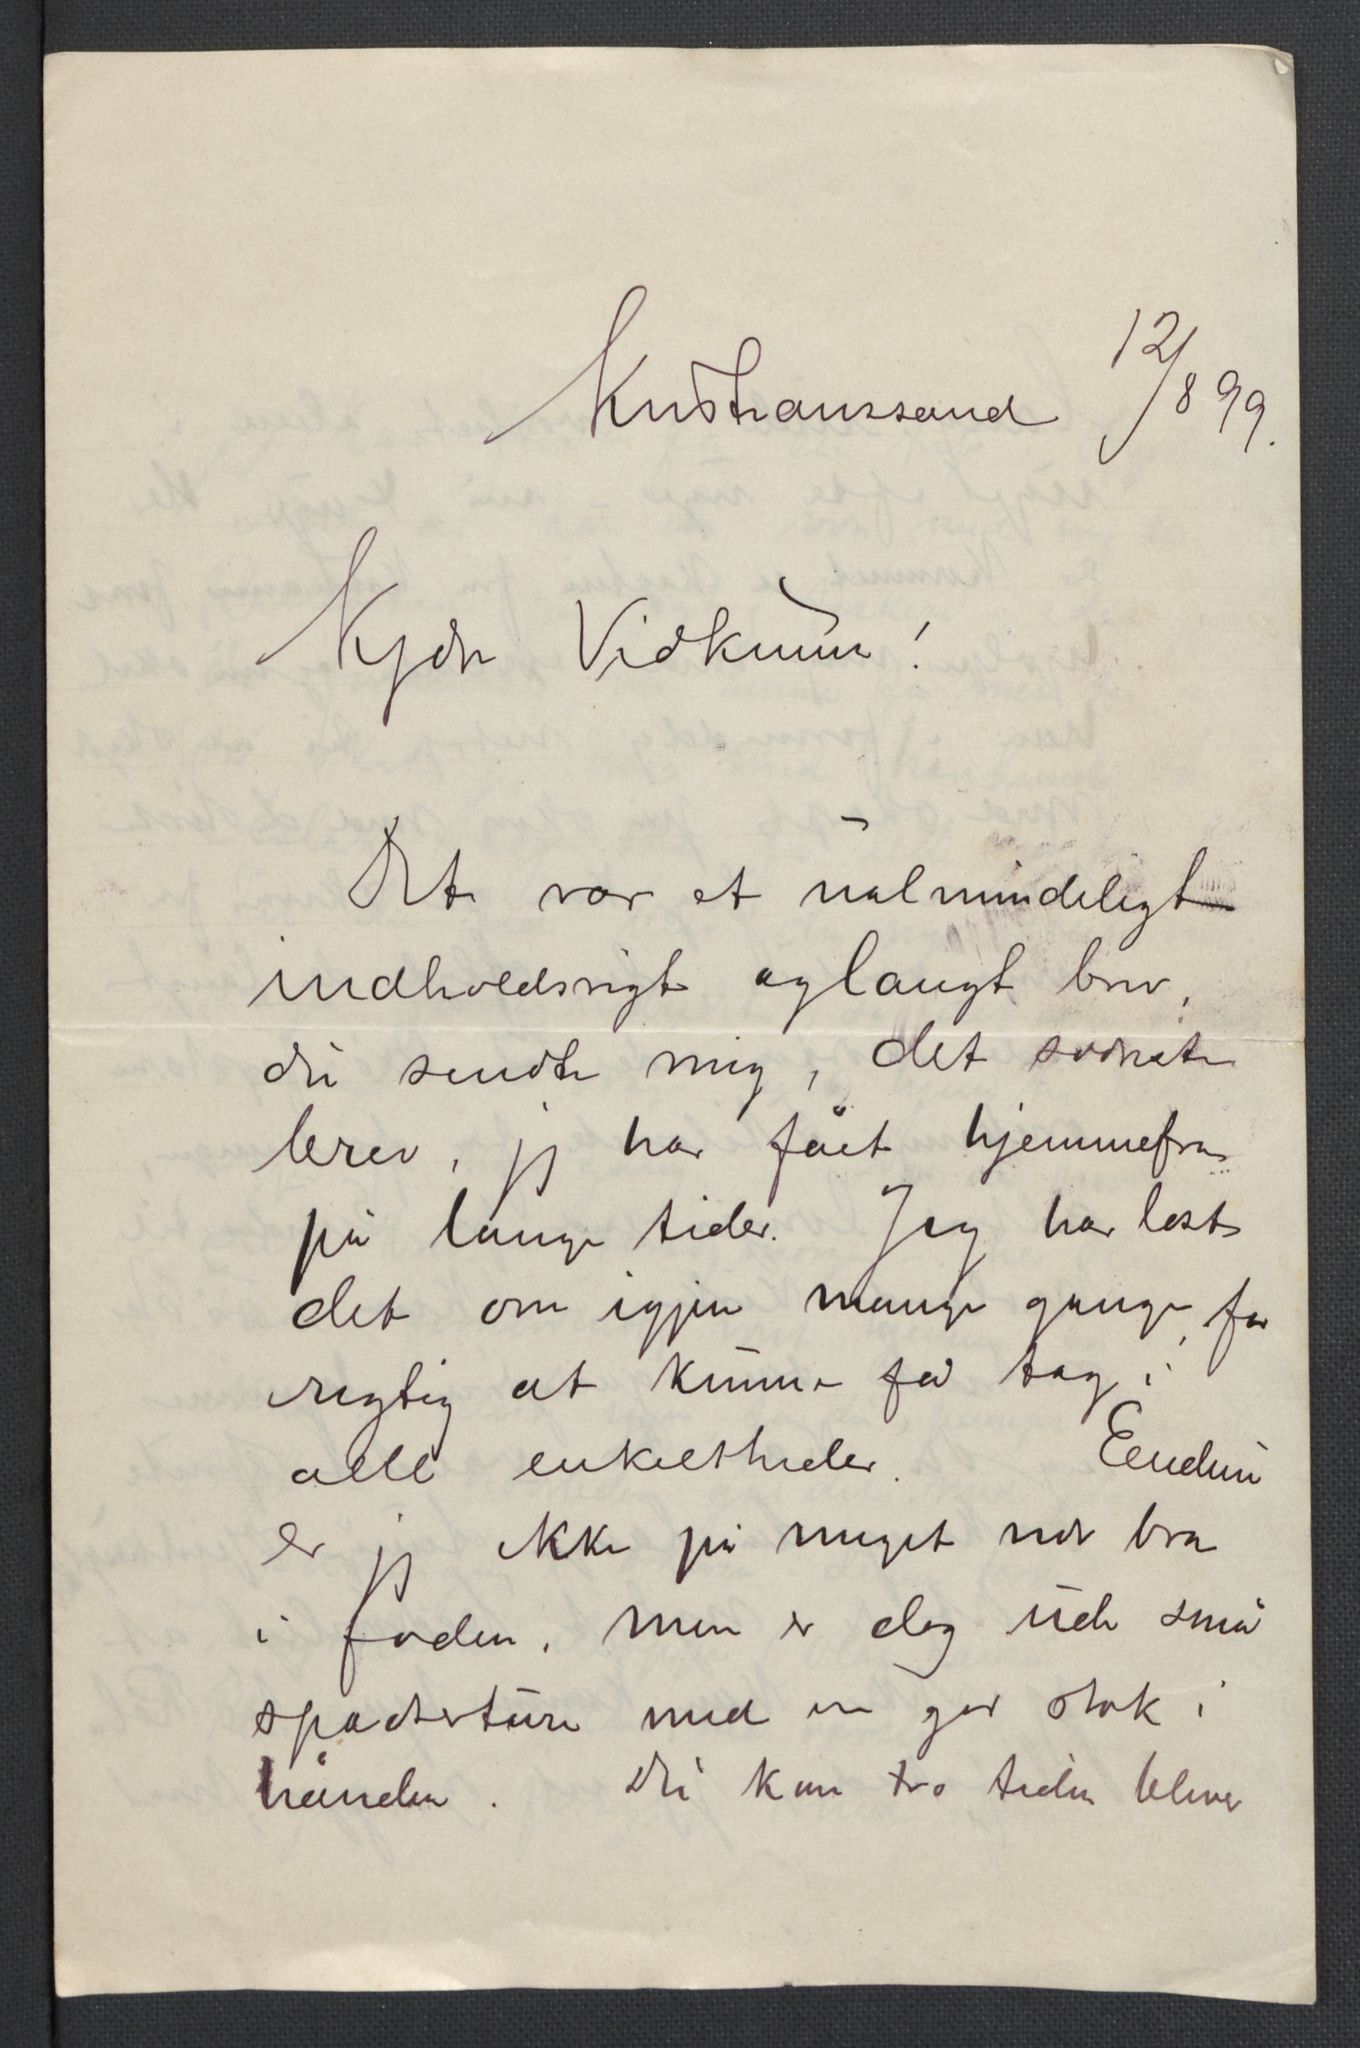 Kristianssand 12/8 99.
Kjære Vidkunn!
Det var et ualmindeligt
indholdsrigt og langt brev,
du sendte mig, det største
brev, jeg har fået hjemmefra
på lange tider. Jeg har læst
det om igjen mange gange, for
rigtig at kunne få tag i
alle enkeltheder. Endnu
er jeg ikke på meget nær bra
i foden, men er dog ude små
spadserture med en god stok i
hånden. Du kan tro tiden bliver